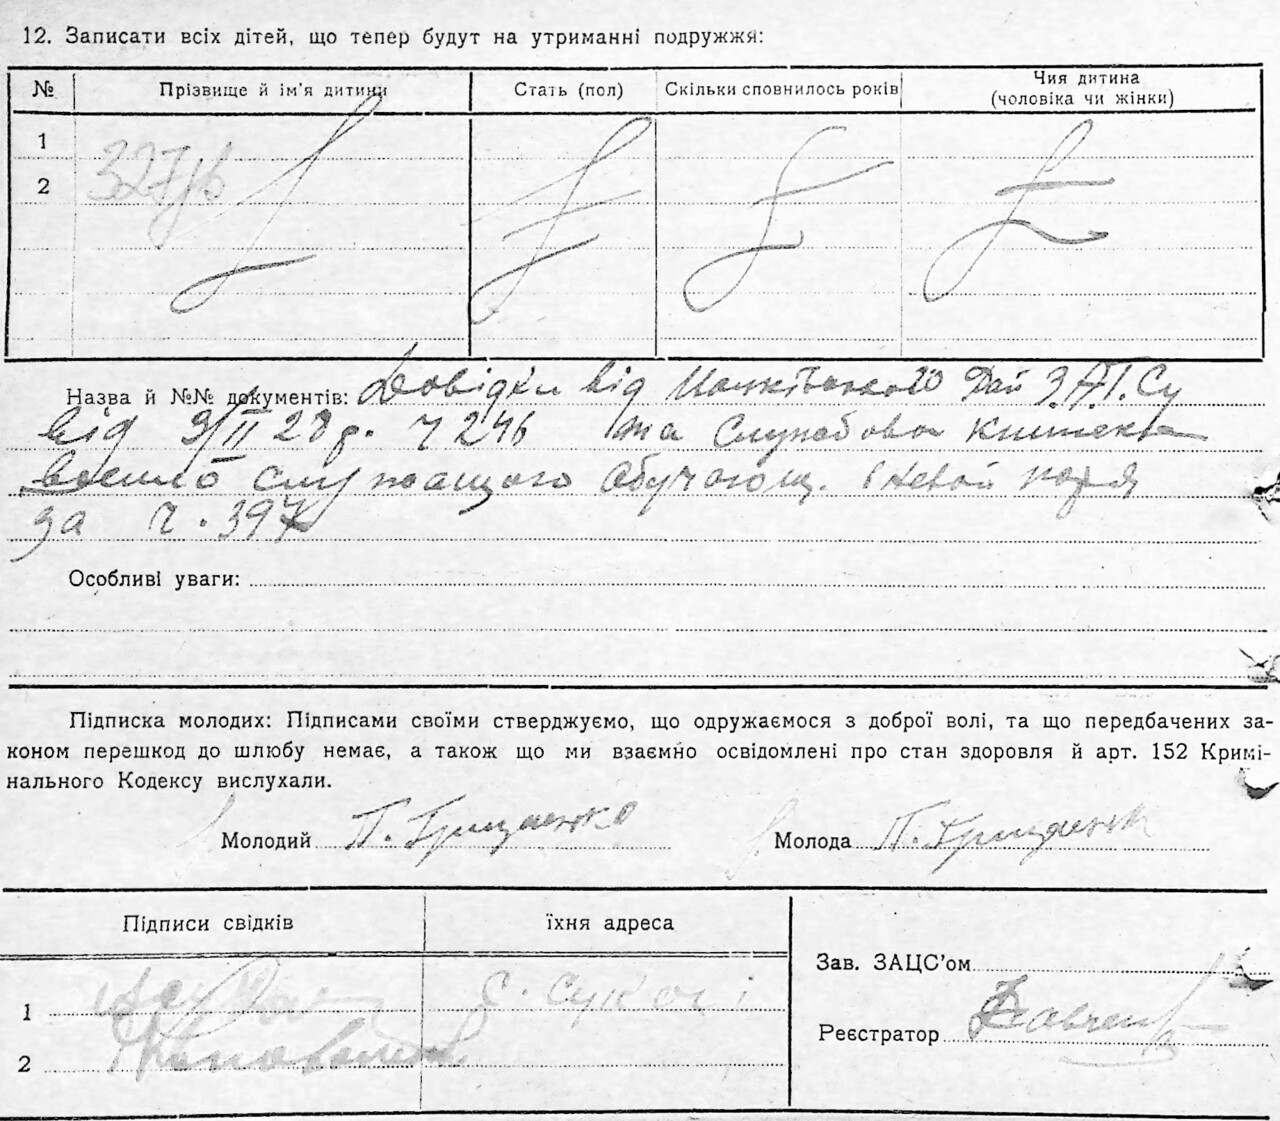 12. Записати всіх дітей, що тепер будут на утриманні подружжя:
№ Прізвище й ім'я дитини Стать (пол) Скільки сповнилось років Чия дитина (чоловіка чи жінки)
1
2
Назва й №№ документів: Довідки від Рай З.А.Г.Су
від 9/II 28 р. ч 246 та службова книжка
служащого
за ч. 397
Особливі уваги:
Підписка молодих: Підписами своїми стверджуємо, що одружаємося з доброї волі, та що передбачених за-
коном перешкод до шлюбу немає, а також що ми взаємно освідомлені про стан здоровля й арт. 152 Кримі-
нального Кодексу вислухали.
Молодий П. Грищенко Молода П. Грищенк
Підписи свідків їхня адреса
Зав. ЗАЦС'ом
1
Реєстратор
2